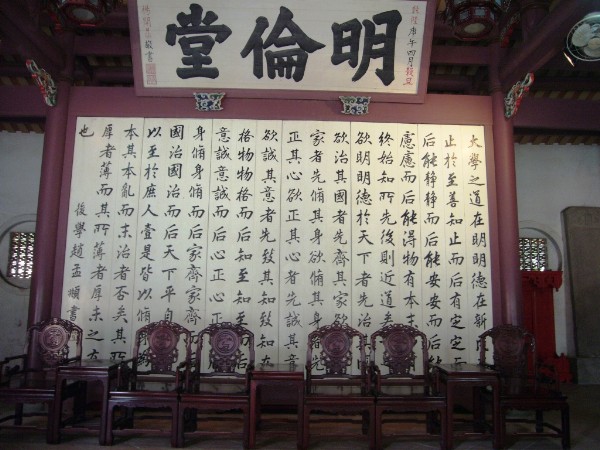 明倫堂
乾隆庚午四月穀旦
敬書
大學之道在明明德在新
止於至善知止而后有定定而
后能靜靜而后能安安而后能
慮慮而后能得物有本末
終始知所先後則近道矣
欲明明德於天下者先治其
欲治其國者先齊其家欲
家者先脩其身欲脩其
正其心欲正其心者先誠其意
欲誠其意者先致其知致知在
格物物格而后知至知至而后
意誠意誠而后心正心正
身脩身脩而后家齊家齊而
國治國治而后天下平自
以至於庶人壹是皆以脩身
本其本亂而末治者否矣其所
厚者薄而其所薄者厚未之有
也 後學趙孟頫書